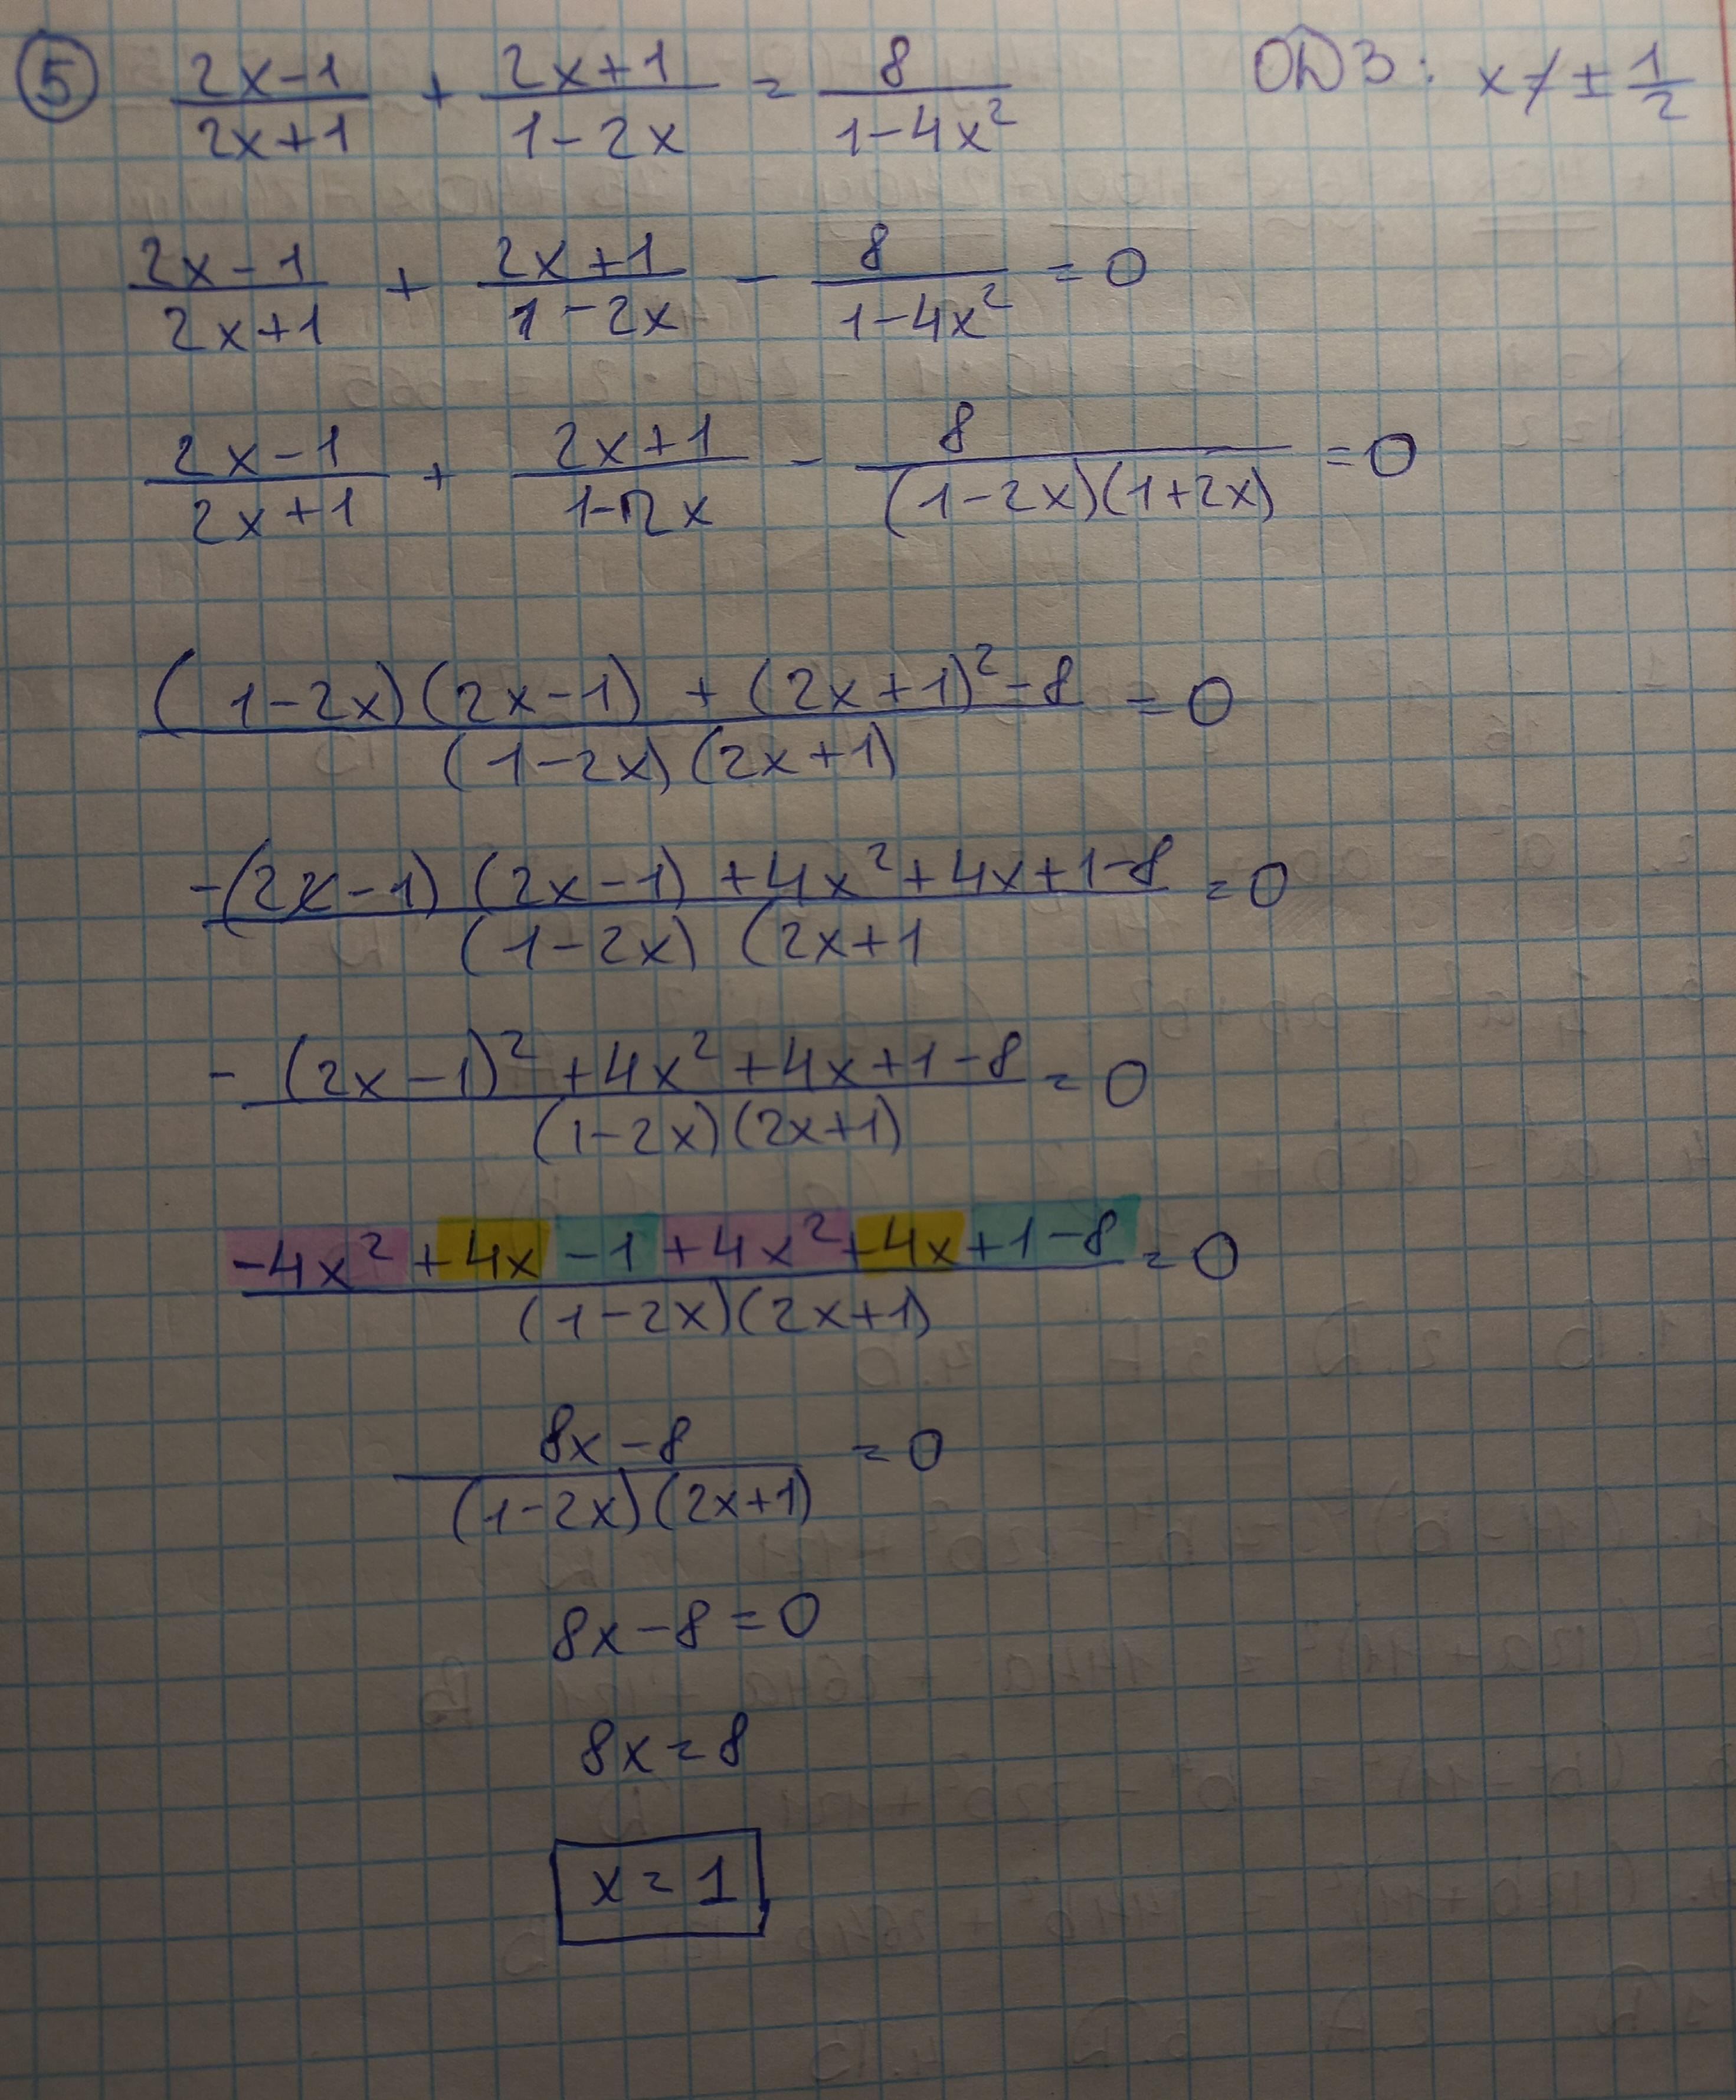 ⑤ (2x-1)/(2x+1) + (2x+1)/(1-2x) = 8/(1-4x²) ОДЗ: x≠±1/2
(2x-1)/(2x+1) + (2x+1)/(1-2x) - 8/(1-4x²) = 0
(2x-1)/(2x+1) + (2x+1)/(1-2x) - 8/((1-2x)(1+2x)) = 0
((1-2x)(2x-1) + (2x+1)²-8)/((1-2x)(2x+1)) = 0
(-(2x-1)(2x-1) +4x²+4x+1-8)/((1-2x)(2x+1) = 0
(-(2x-1)²+4x²+4x+1-8)/((1-2x)(2x+1)) = 0
(-4x²+4x-1+4x²+4x+1-8)/((1-2x)(2x+1)) = 0
(8x-8)/((1-2x)(2x+1)) = 0
8x-8=0
8x=8
x=1